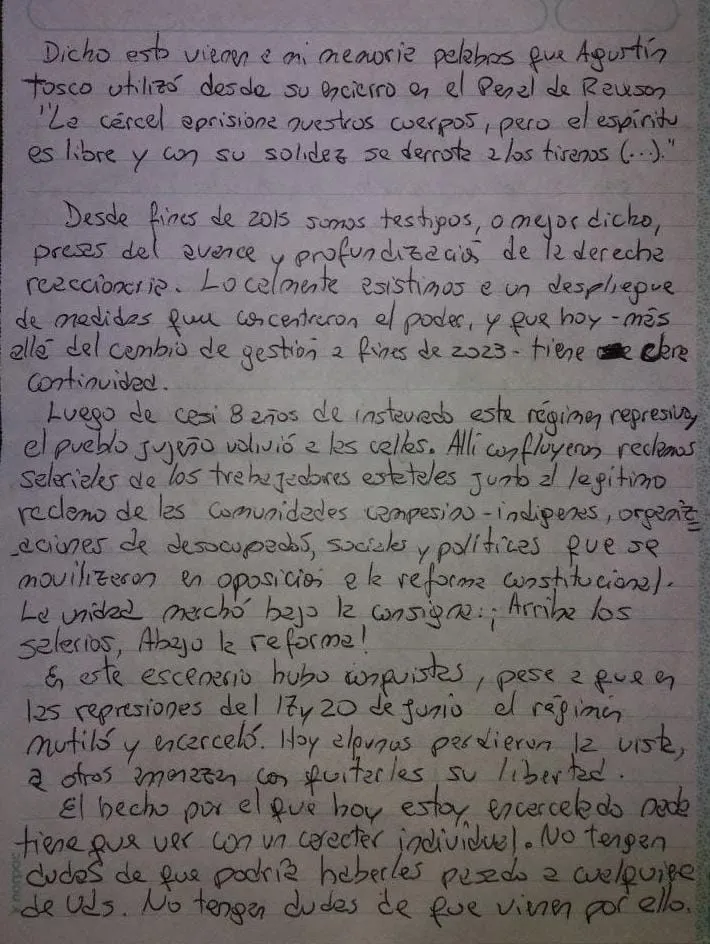 Dicho esto vienen a mi memoria palabras que Agustín
Tosco utilizó desde su encierro en el Penal de Rawson
"La cárcel aprisiona nuestros cuerpos, pero el espíritu
es libre y con su solidez se derrota a los tiranos (...)."
Desde fines de 2015 somos testigos, o mejor dicho,
presas del avance y profundización de la derecha
reaccionaria. Localmente asistimos a un despliegue
de medidas que concentraron el poder, y que hoy -más
allá del cambio de gestión a fines de 2023- tiene clara
continuidad.
Luego de casi 8 años de instaurado este régimen represivo,
el pueblo jujeño volvió a las calles. Allí confluyeron reclamos
salariales de los trabajadores estatales junto al legítimo
reclamo de las comunidades campesino-indígenas, organiz
aciones de desocupados, sociales y políticas que se
movilizaron en oposición a la reforma constitucional.
La unidad marchó bajo la consigna: ¡Arriba los
salarios, Abajo la reforma!
En este escenario hubo conquistas, pese a que en
las represiones del 17 y 20 de junio el régimen
mutiló y encarceló. Hoy algunas perdieron la vista,
a otros amenazan con quitarles su libertad.
El hecho por el que hoy estoy encarcelado nada
tiene que ver con un carácter individual. No tengan
dudas de que podría haberles pasado a cualquiera
de Uds. No tengan dudas de que vienen por ello.
norpac